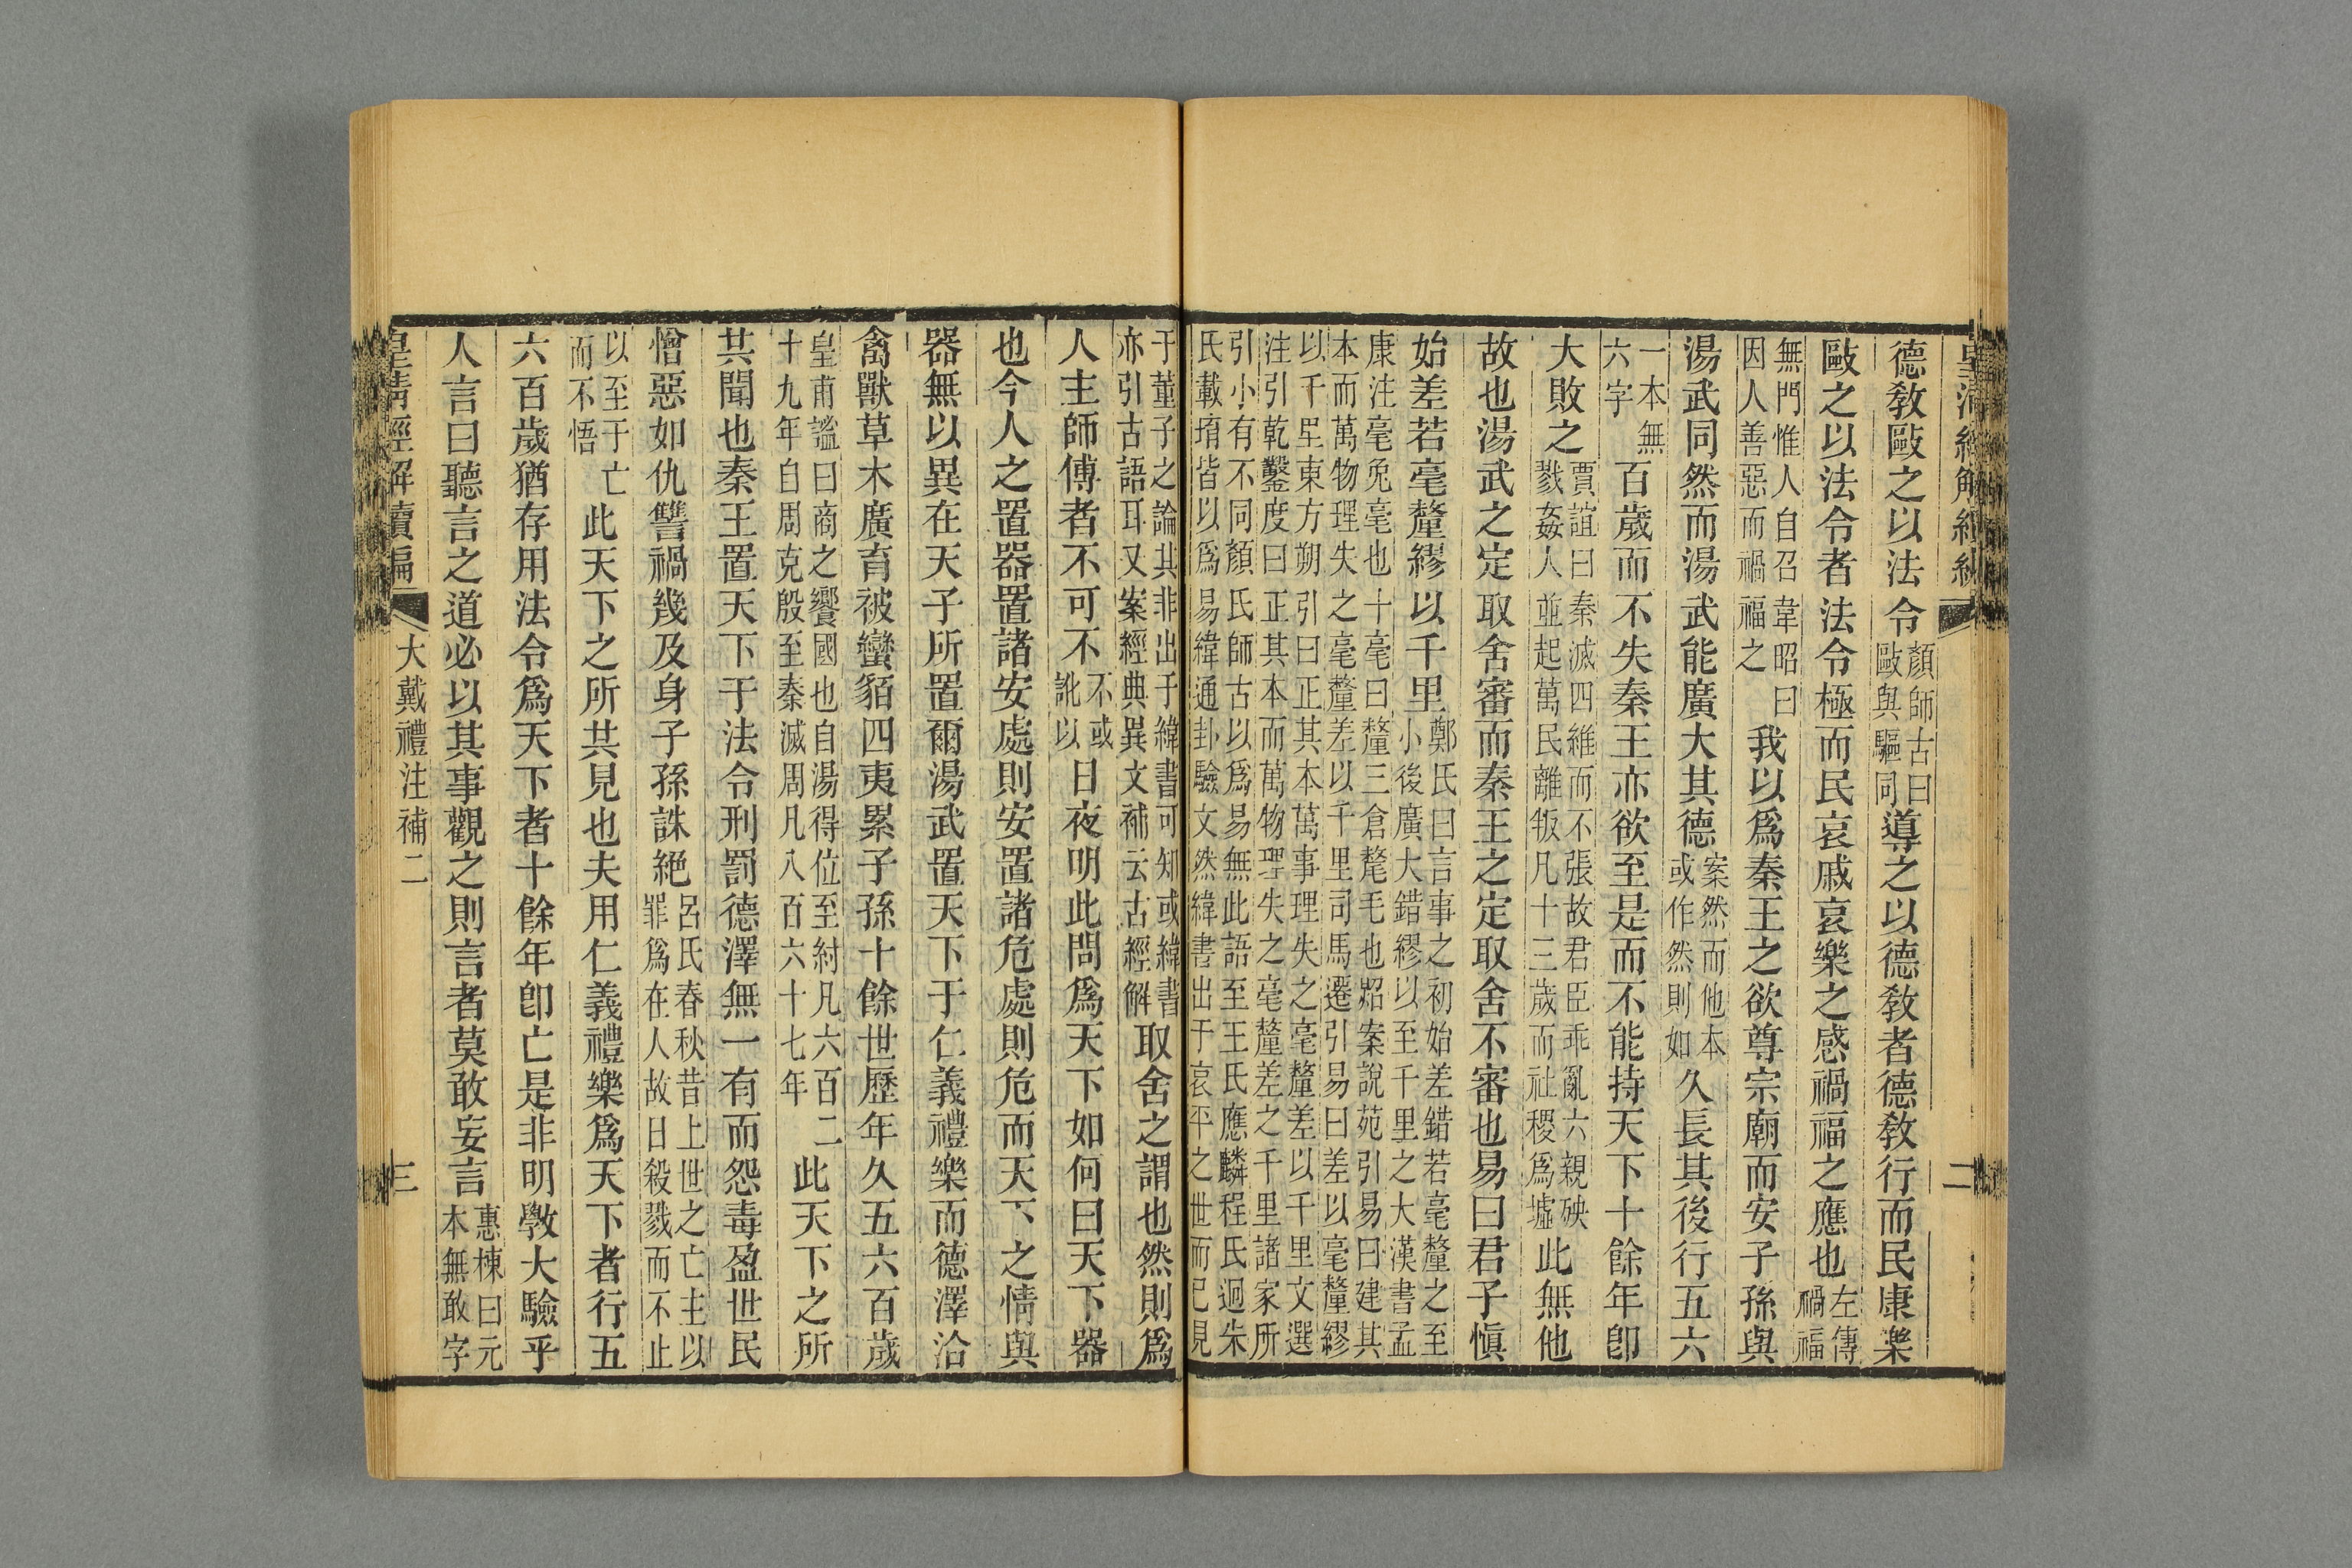 皇清經解續編 二
德教敺之以法令顏師古曰敺與驅同導之以德教者德教行而民康樂
敺之以法令者法令極而民哀戚哀樂之感禍福之應也左傳禍福
無門惟人自召韋昭曰因人善惡而禍福之我以爲秦王之欲尊宗廟而安子孫與
湯武同然而湯武能廣大其德案然而他本或作然則如久長其後行五六
一本無六字百歲而不失秦王亦欲至是而不能持天下十餘年卽
大敗之賈誼曰秦滅四維而不張故君臣乖亂六親殃戮姦人並起萬民離叛凡十三歲而社稷爲墟此無他
故也湯武之定取舍審而秦王之定取舍不審也易曰君子愼
始差若毫釐繆以千里鄭氏曰言事之初始差錯若毫釐之至小後廣大錯繆以至千里之大漢書孟
康注毫兔毫也十毫曰釐三倉氂毛也炤案說苑引易曰建其本而萬物理失之毫釐差以千里司馬遷引易曰差以毫釐繆
以千里東方朔引曰正其本萬事理失之毫釐差以千里文選注引乾鑿度曰正其本而萬物理失之毫釐差之千里諸家所
引小有不同顏氏師古以爲易無此語至王氏應麟程氏迥朱氏載堉皆以爲易緯通卦驗文然緯書出于哀平之世而已見
于董子之論其非出于緯書可知或緯書亦引古語耳又案經典異文補云古經解取舍之謂也然則爲
人主師傅者不可不不或訛以日夜明此問爲天下如何曰天下器
也今人之置器置諸安處則安置諸危處則危而天下之情與
器無以異在天子所置爾湯武置天下于仁義禮樂而德澤洽
禽獸草木廣育被蠻貊四夷累子孫十餘世歷年久五六百歲
皇甫謐曰商之饗國也自湯得位至紂凡六百二十九年自周克殷至秦滅周凡八百六十七年此天下之所
共聞也秦王置天下于法令刑罰德澤無一有而怨毒盈世民
憎惡如仇讐禍幾及身子孫誅絕呂氏春秋昔上世之亡主以罪爲在人故日殺戮而不止
以至于亡而不悟此天下之所共見也夫用仁義禮樂爲天下者行五
六百歲猶存用法令爲天下者十餘年卽亡是非明斆大驗乎
人言曰聽言之道必以其事觀之則言者莫敢妄言惠棟曰元本無敢字
皇清經解續編 大戴禮注補二 三